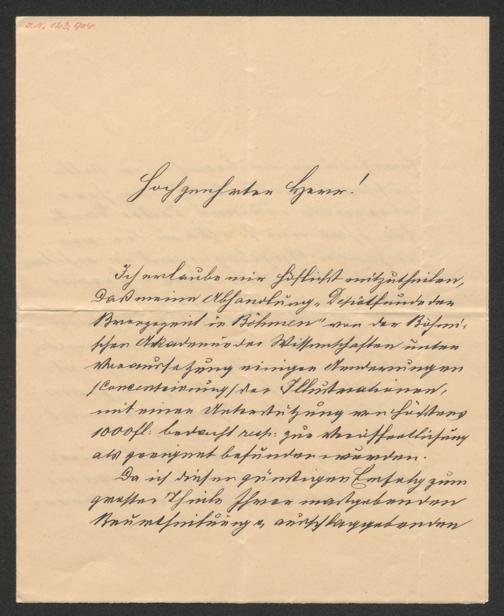 I.N. 123.404
Hochgeehrter Herr!
Ich erlaube mir höflichst mitzutheilen,
daß meine Abhandlung „Depotfunde der
Bronzezeit in Böhmen" von der Böhmi-
schen Akademie der Wissenschaften unter
Voraussetzung einiger Aenderungen
/Concentrirung/ der Illustrationen,
mit einer Unterstützung von höchstens
1000 fl. bedacht resp. zur Veröffentlichung
als geeignet befunden wurden.
Da ich diesen günstigen Erfolg zum
großen Theile Ihrer maßgebenden
Beurtheilung & ausschlaggebenden